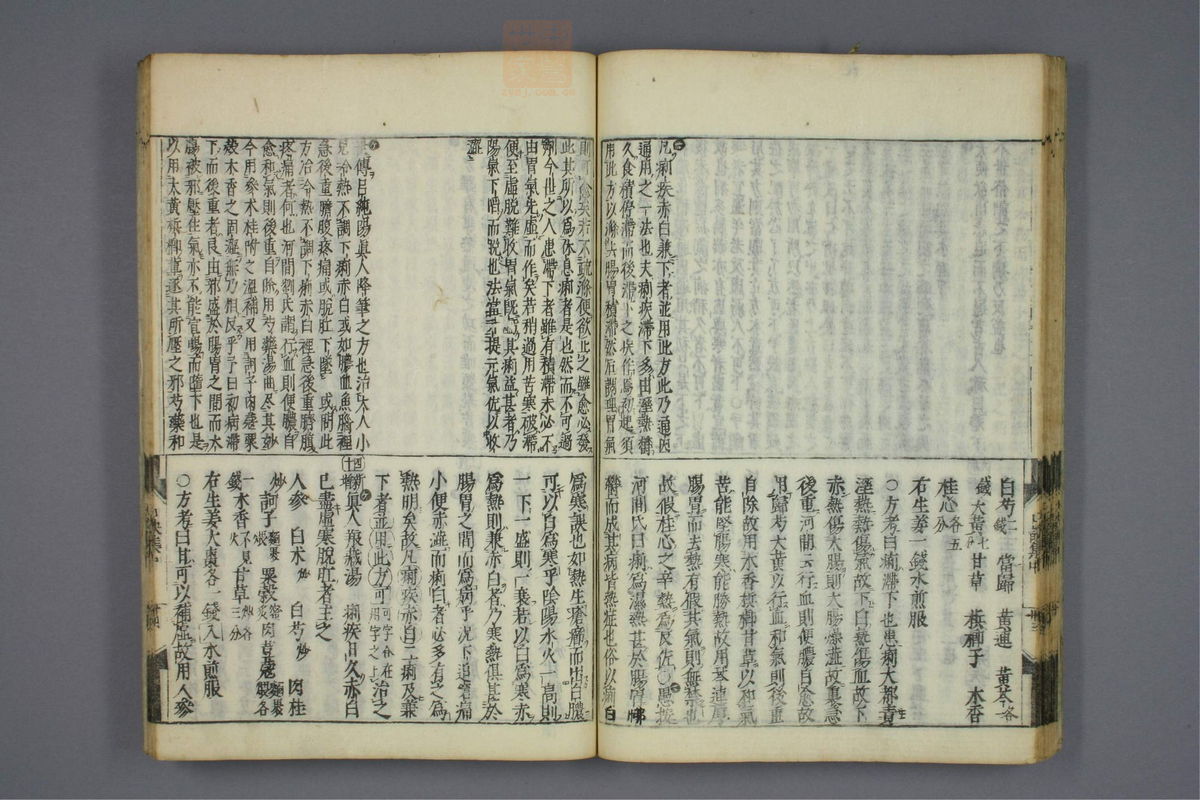 白芍二錢 當歸 黃連 黃芩各
錢大黃七 甘草 檳榔子 木香
桂心各五分
右生薑一錢水煎服
○方考曰痢滯下也患痢大都責
於溼熱熱傷氣故下白熱傷血故下
赤熱傷大腸則大腸燥澁故裏急
後重河間云行血則便膿自愈故
用歸芍大黃以行血和氣則後重
自除故用木香檳榔甘草以和氣
苦能堅腸寒能勝熱故用芩連厚
腸胃而去熱有假其氣則無禁也
故假桂心之辛熱為反佐○愚按
河間氏曰痢為濕熱甚於腸胃怫
欝而成其病皆熱症也俗以痢白
為寒誤也如熱生瘡癤而出白膿
可以白為寒乎陰陽水火一高則
一下一盛則一衰若以白為寒赤
為熱則兼赤白者乃寒熱俱甚於
腸胃之間而為病乎況下迫窘痛
小便赤澁而痢白者必多有之為
熱明矣故凡痢疾赤白二痢及兼
下者並用此方可
新增真人養臟湯 痢疾日久赤白
已盡虛寒脫肛者主之
人參 白朮炒 白芍炒 肉桂
炒訶子 罌粟殼 肉荳蔻
木香不見火 甘草
右生姜大棗各一錢入水煎服
○方考曰甘可以補虛故用人參
凡痢疾赤白兼下者並用此方此乃通因
通用之一法也夫痢疾滯下多由溼熱欝
久食積停滯而後滯下之疾作為初起須
用此方以滌去腸胃積滯然后調理胃氣
此其所以為休息痢者是也然而不可過
劑今世之人患滯下者雖有積滯未必不
由胃氣先虛而作矣若稍過用苦寒破滯
便至虛脫難收胃氣既
陽氣下陷而說也法當升提元氣佐以收
澁
傳曰純陽真人降筆之方也治大人小
兒冷熱不調下痢赤白或如膿血魚腦裡
急後重臍腹疼痛或脫肛下墜 或問此
方治冷熱不調下痢赤白裡急後重臍腹
疼痛者何也河間劉氏謂行血則便膿自
愈和氣則後重自除用芍藥湯曲尽其妙
今用參朮桂附之溫補又用訶子肉荳粟
殼木香之固澁能乃相反乎予曰初病滯
下而後重者良由邪盛於腸胃之間而大
腸被邪壓住氣亦不能宣暢而墮下也是
以用大黃檳榔輩逐其所壓之邪芍藥和